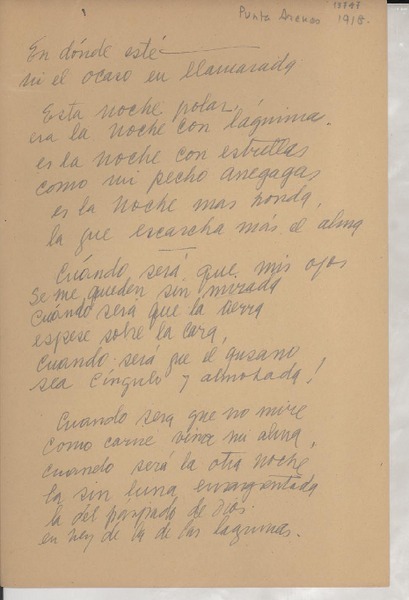 Punta Arenas 1918.
En dónde esté
ni el ocaso en llamarada
Esta noche polar,
era la noche con lágrimas.
es la noche con estrellas
como mi pecho anegagas
es la noche mas honda,
la que escarcha más el alma
Cuándo será que mis ojos
Se me queden sin mirada
Cuándo será que la tierra
espese sobre la cara,
Cuando será que el gusano
sea cíngulo y almohada!
Cuando sera que no mire
Como carne viva mi alma,
Cuando será la otra noche
la sin luna enargentada
la del parpado de Dios
en vez de la de las lagrimas.